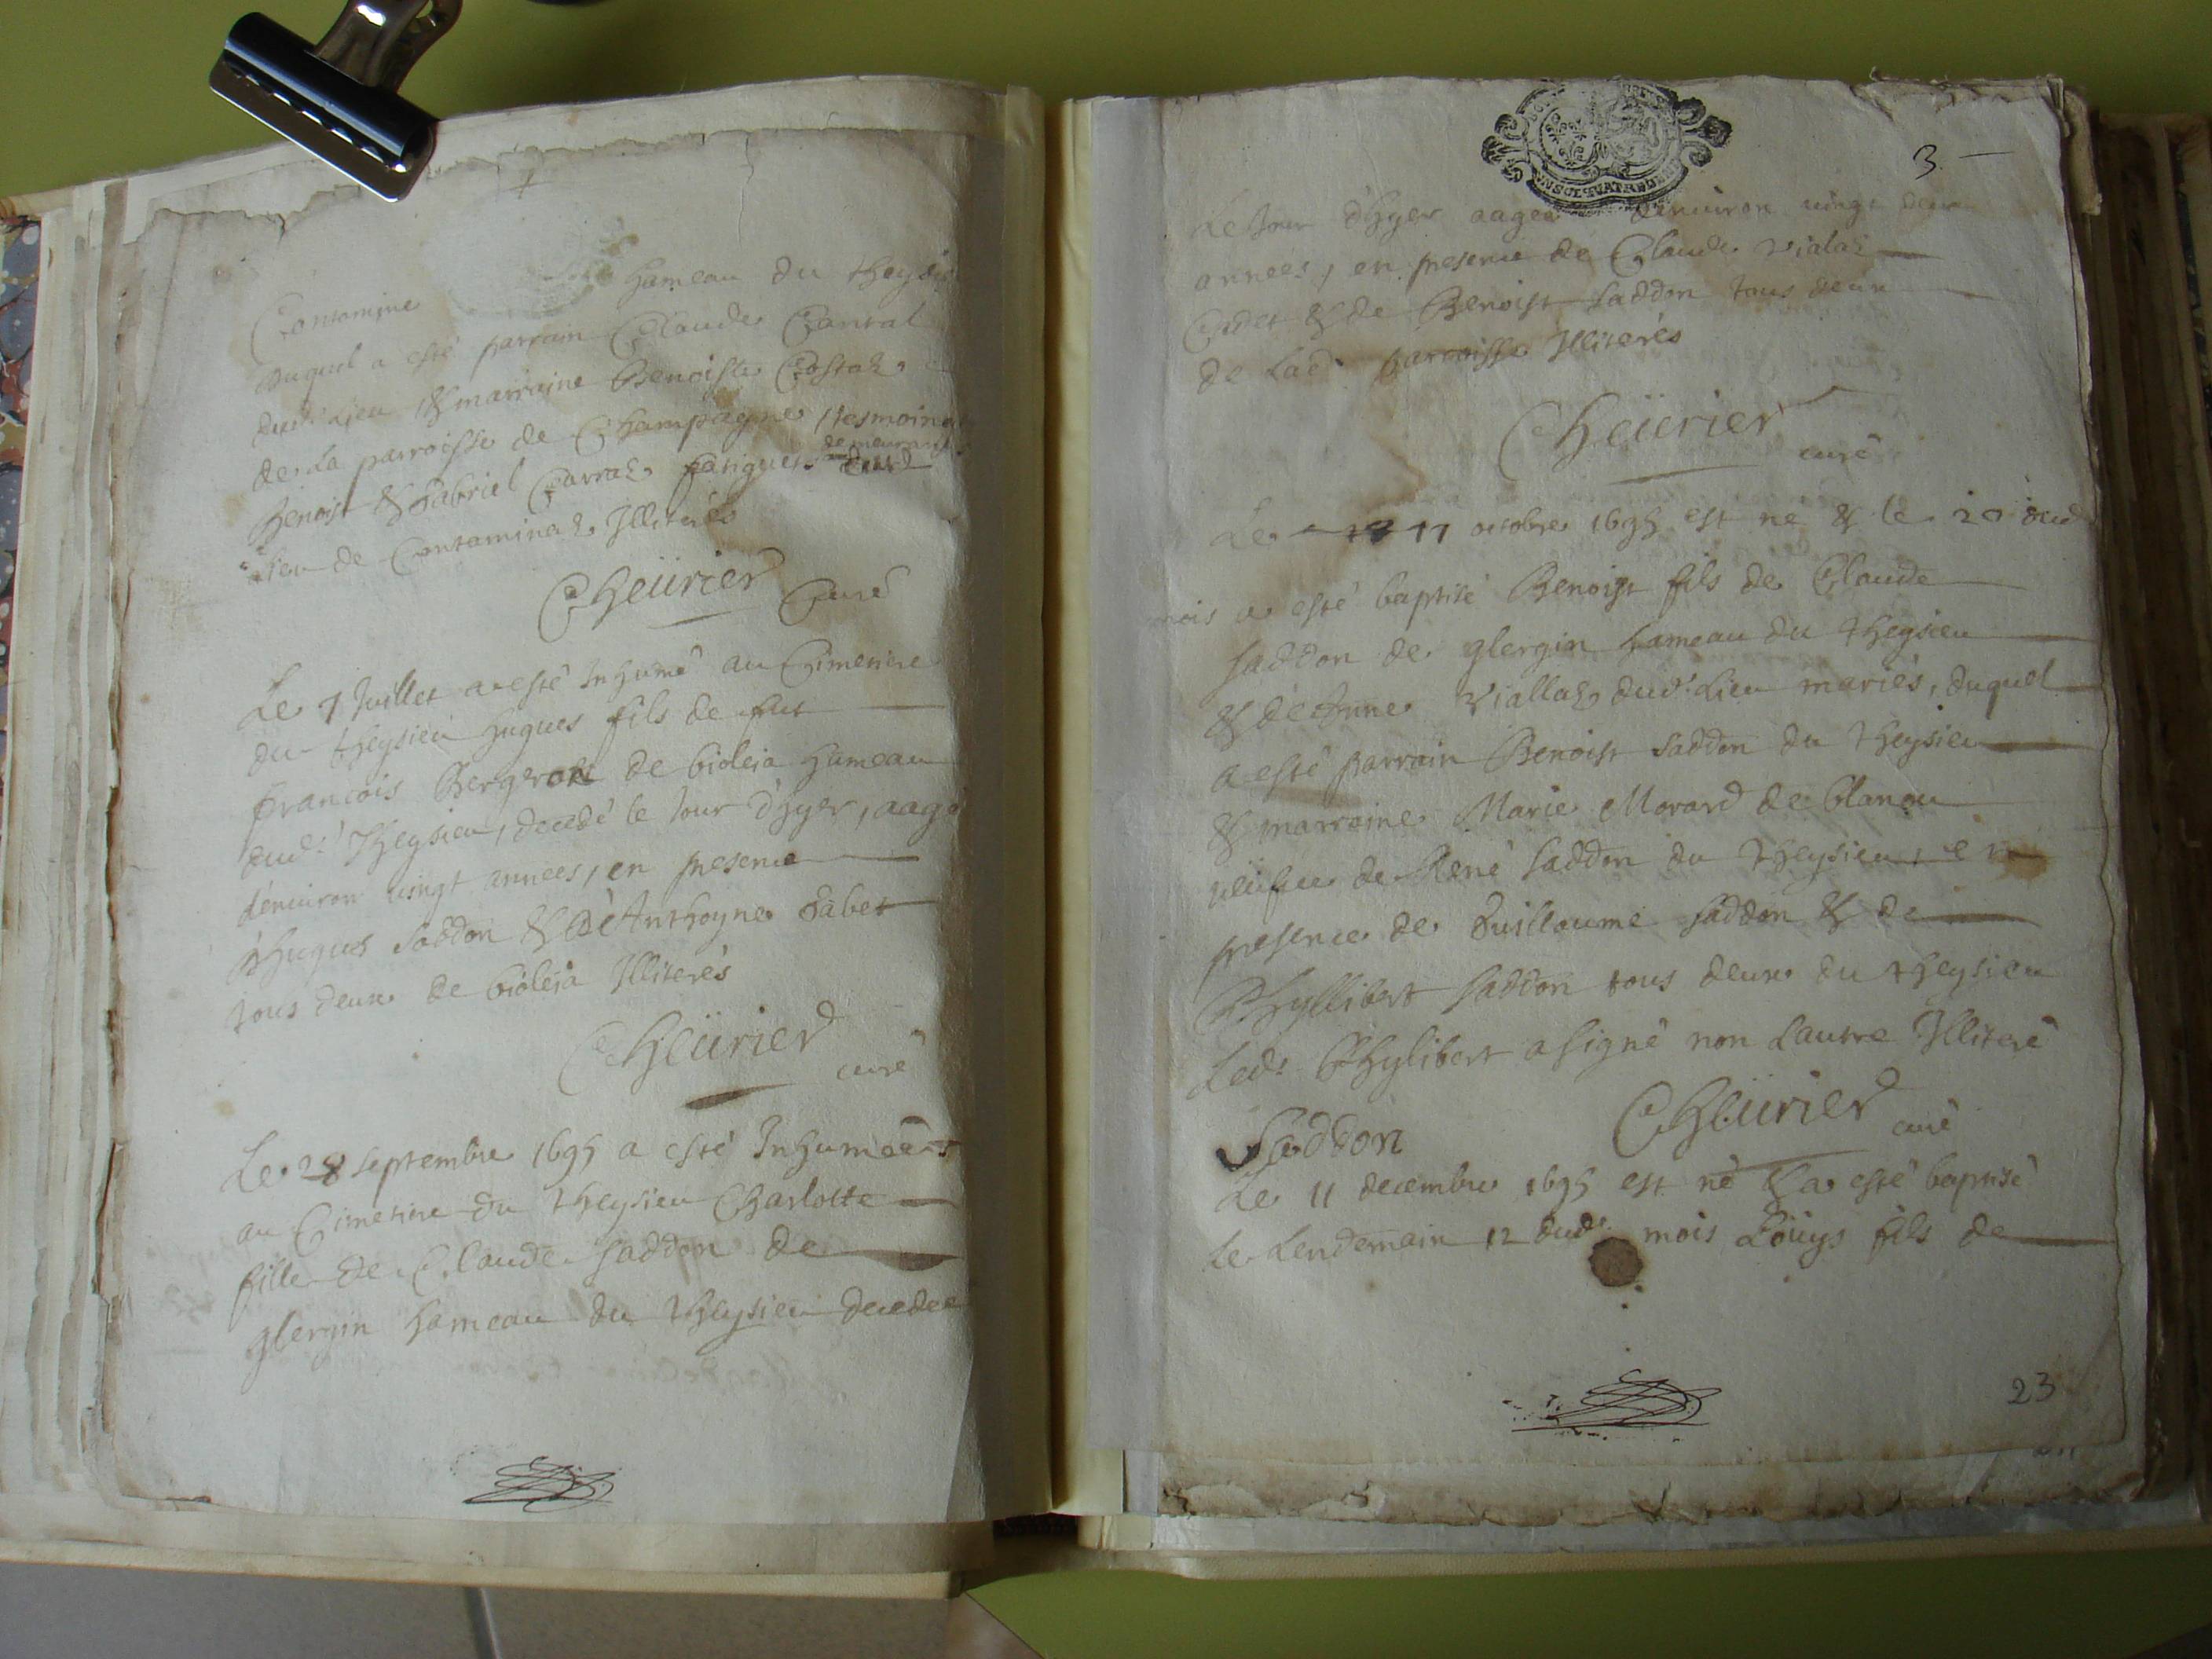 Contamine hameau du theysieu
duquel a esté parrain Claude Carral
dud: Lieu & marraine Benoiste Costaz
de La parroisse de Champagne, tesmoins
Benoist & Gabriel Carraz
demeurants
Lieu de Contaminaz Illiterés
Cheürier Curé
Le 7 Juillet a esté Inhumé au Cimetiere
du theysieu hugues fils de fut
francois Bergeron de bioleia hameau
dud: Theysieu, decedé le Jour d'hyer, aagé
d'enuiron uingt annees, en presence
d'hugues saddon & de Anthoyne Gabet
tous deux de bioleia Illiterés
Cheürier
curé
Le 28 septembre 1695 a esté Inhumeé
au Cimetiere du theysieu Charlotte
fille de Claude saddon de
glergin hameau du theysieu decedee
3
Le Jour d'hyer aagee denuiron uingt deux
annees, en presence de Claude vialaz
Cadet & de Benoist saddon tous deux
de Lad: parroisse Illiterés
Cheürier
curé
Le 17 octobre 1695 est né & le 20 dud
mois a esté baptisé Benoist fils de Claude
saddon de glergin hameau du theysieu
& de Anne viallaz dud: Lieu mariés, duquel
a esté parrain Benoist saddon du theysieu
& marraine Marie Morard de blanou
ueüfue de René saddon du theysieu, en
presence de Guillaume saddon & de
Phyllibert saddon tous deux du theysieu
Led: Phylibert a signé non Lautre Illiteré
Saddon Cheürier curé
Le 11 decembre 1695 est né & a esté baptisé
le Lendemain 12 dud: mois Loüys fils de
23